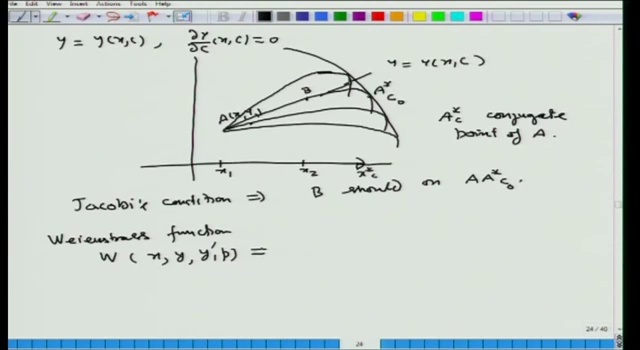 File Edit View Insert Actions Tools Help
y = y(x,c), ∂Y/∂c (x,c) = 0
y = Y(x,c)
B
A*c₀
A(x₁,y₁)
A*c conjugate
point of A.
x₁ x₂ x*c
Jacobi's condition ⇒ B should on AA*c₀.
Weierstrass function
W(x, y, y', p) =
24 / 40
24